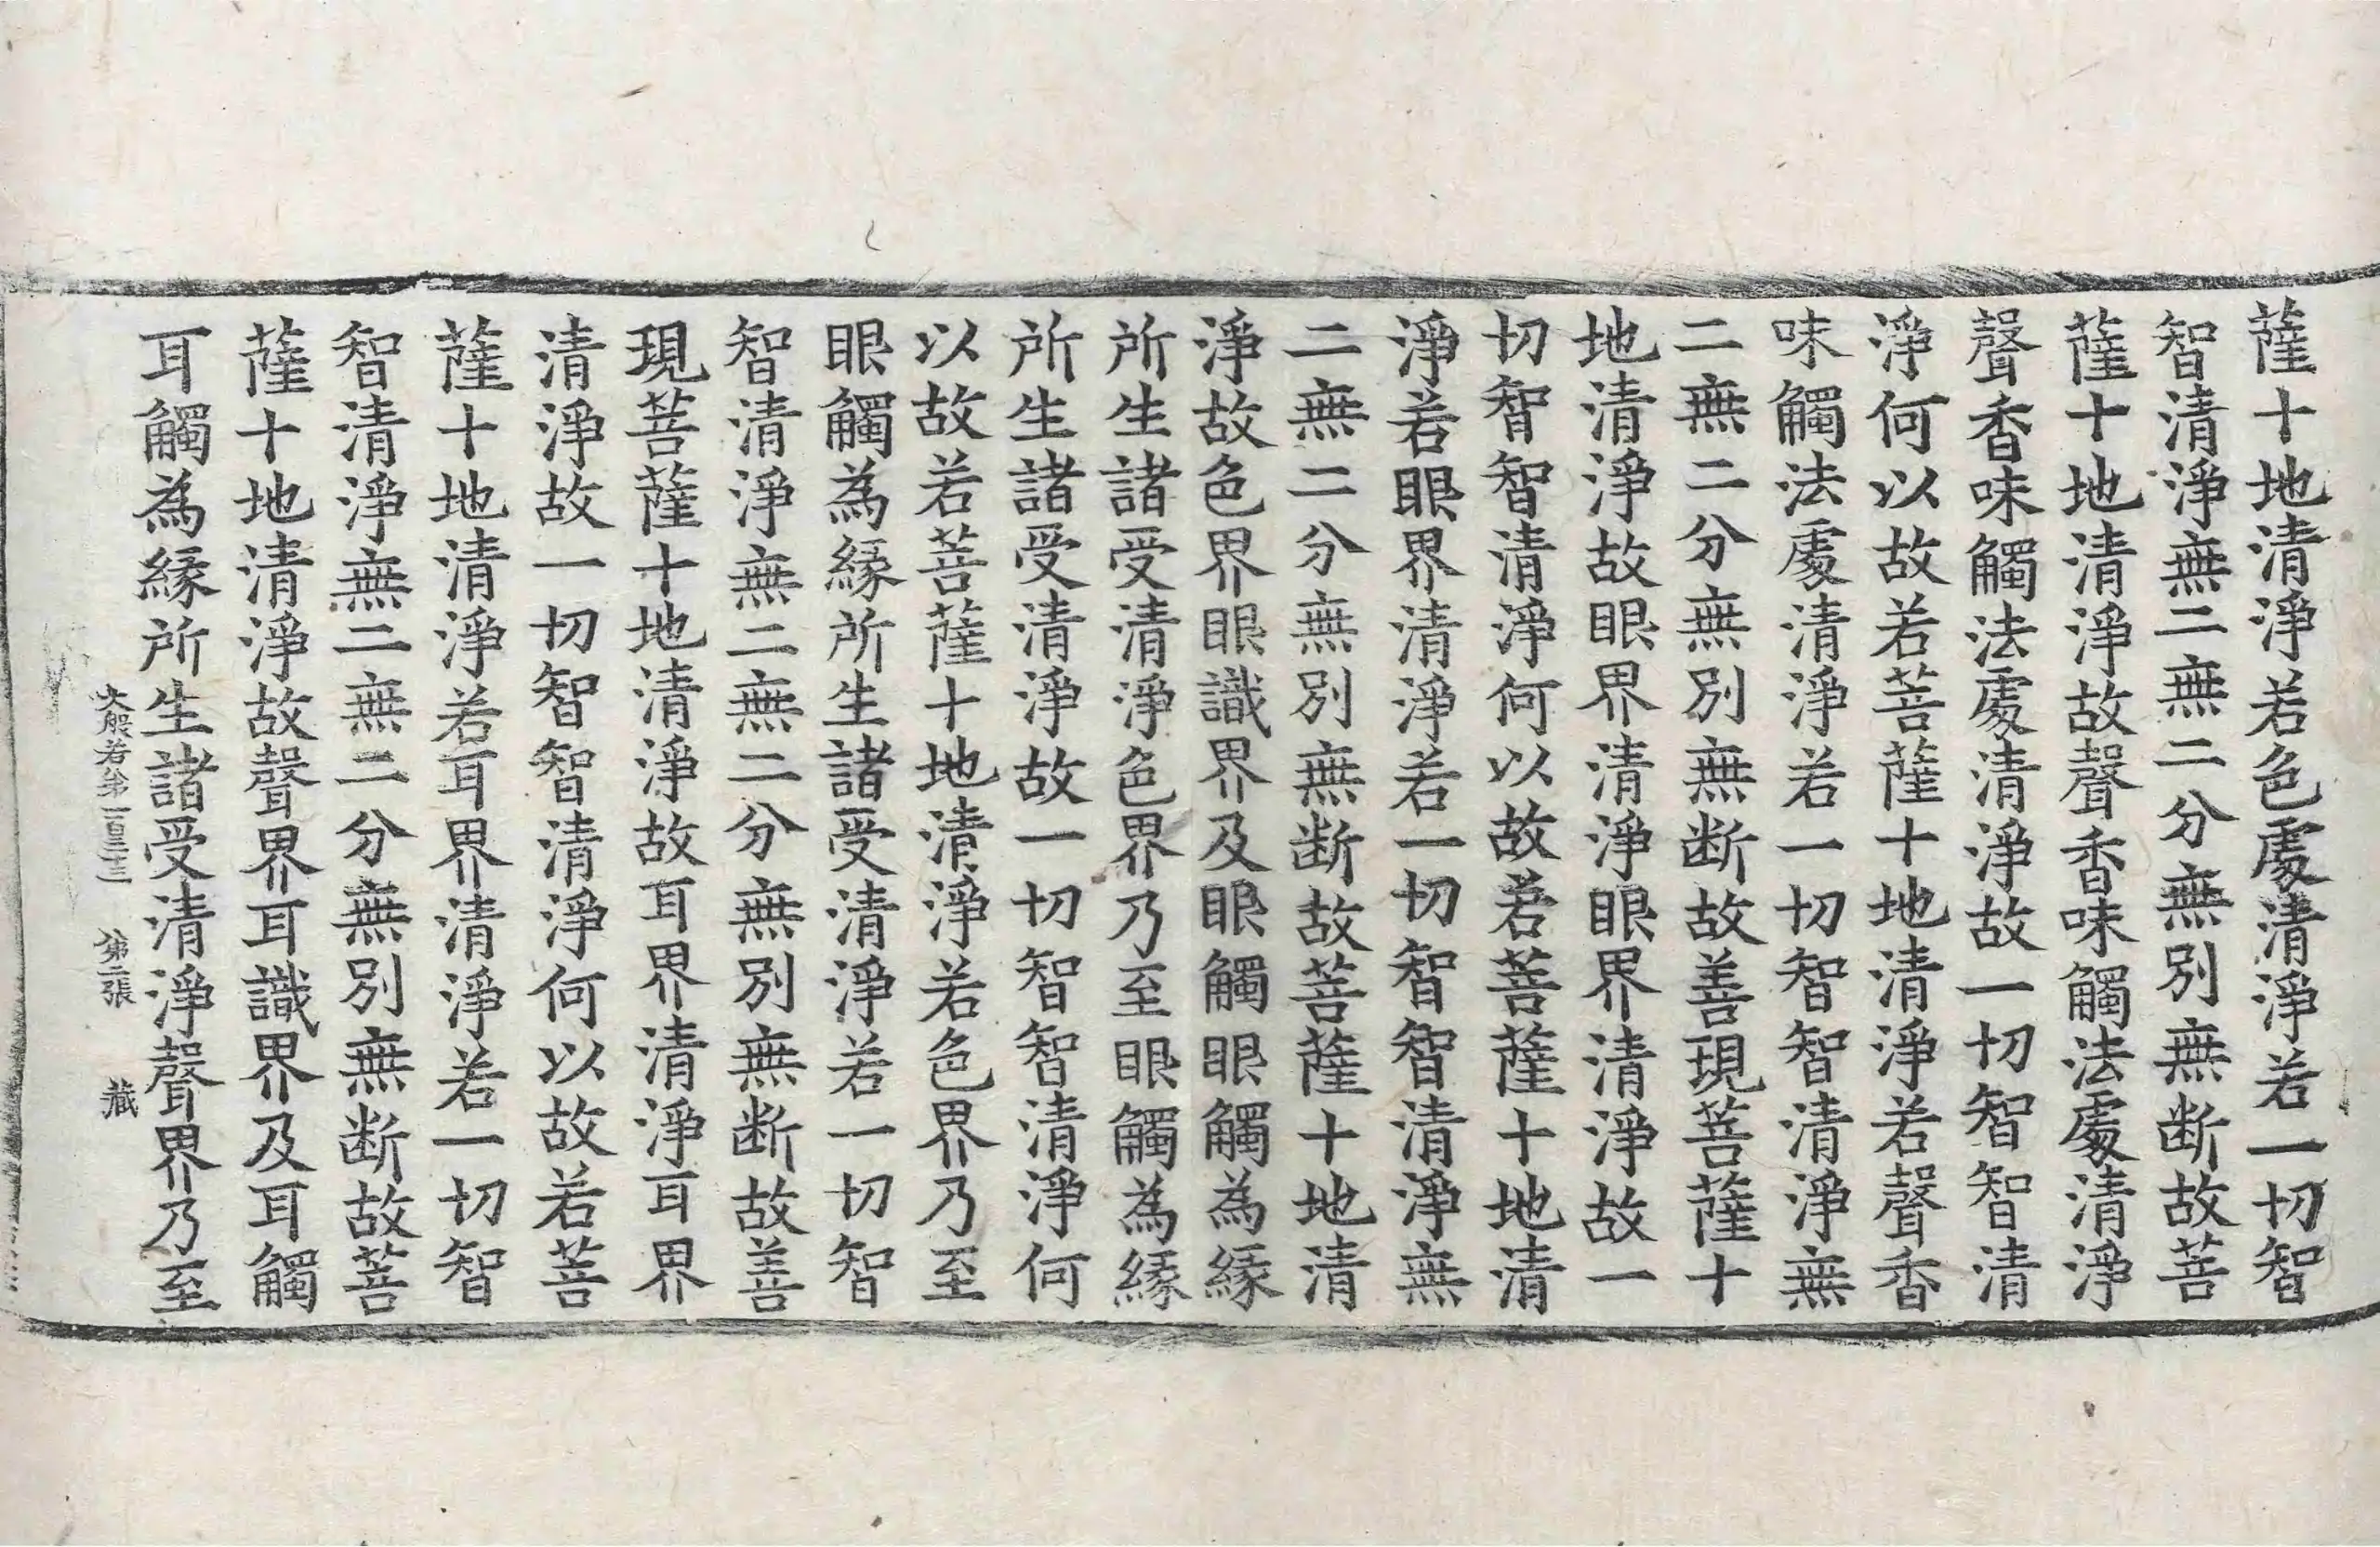 薩十地清淨若色處清淨若一切智
智清淨無二無二分無別無断故菩
薩十地清淨故聲香味觸法處清淨
聲香味觸法處清淨故一切智智清
淨何以故若菩薩十地清淨若聲香
味觸法處清淨若一切智智清淨無
二無二分無別無断故善現菩薩十
地清淨故眼界清淨眼界清淨故一
切智智清淨何以故若菩薩十地清
淨若眼界清淨若一切智智清淨無
二無二分無別無断故菩薩十地清
淨故色界眼識界及眼觸眼觸為緣
所生諸受清淨色界乃至眼觸為緣
所生諸受清淨故一切智智清淨何
以故若菩薩十地清淨若色界乃至
眼觸為緣所生諸受清淨若一切智
智清淨無二無二分無別無断故善
現菩薩十地清淨故耳界清淨耳界
清淨故一切智智清淨何以故若菩
薩十地清淨若耳界清淨若一切智
智清淨無二無二分無別無断故菩
薩十地清淨故聲界耳識界及耳觸
耳觸為緣所生諸受清淨聲界乃至
大般若第二百三十三 第二張 藏